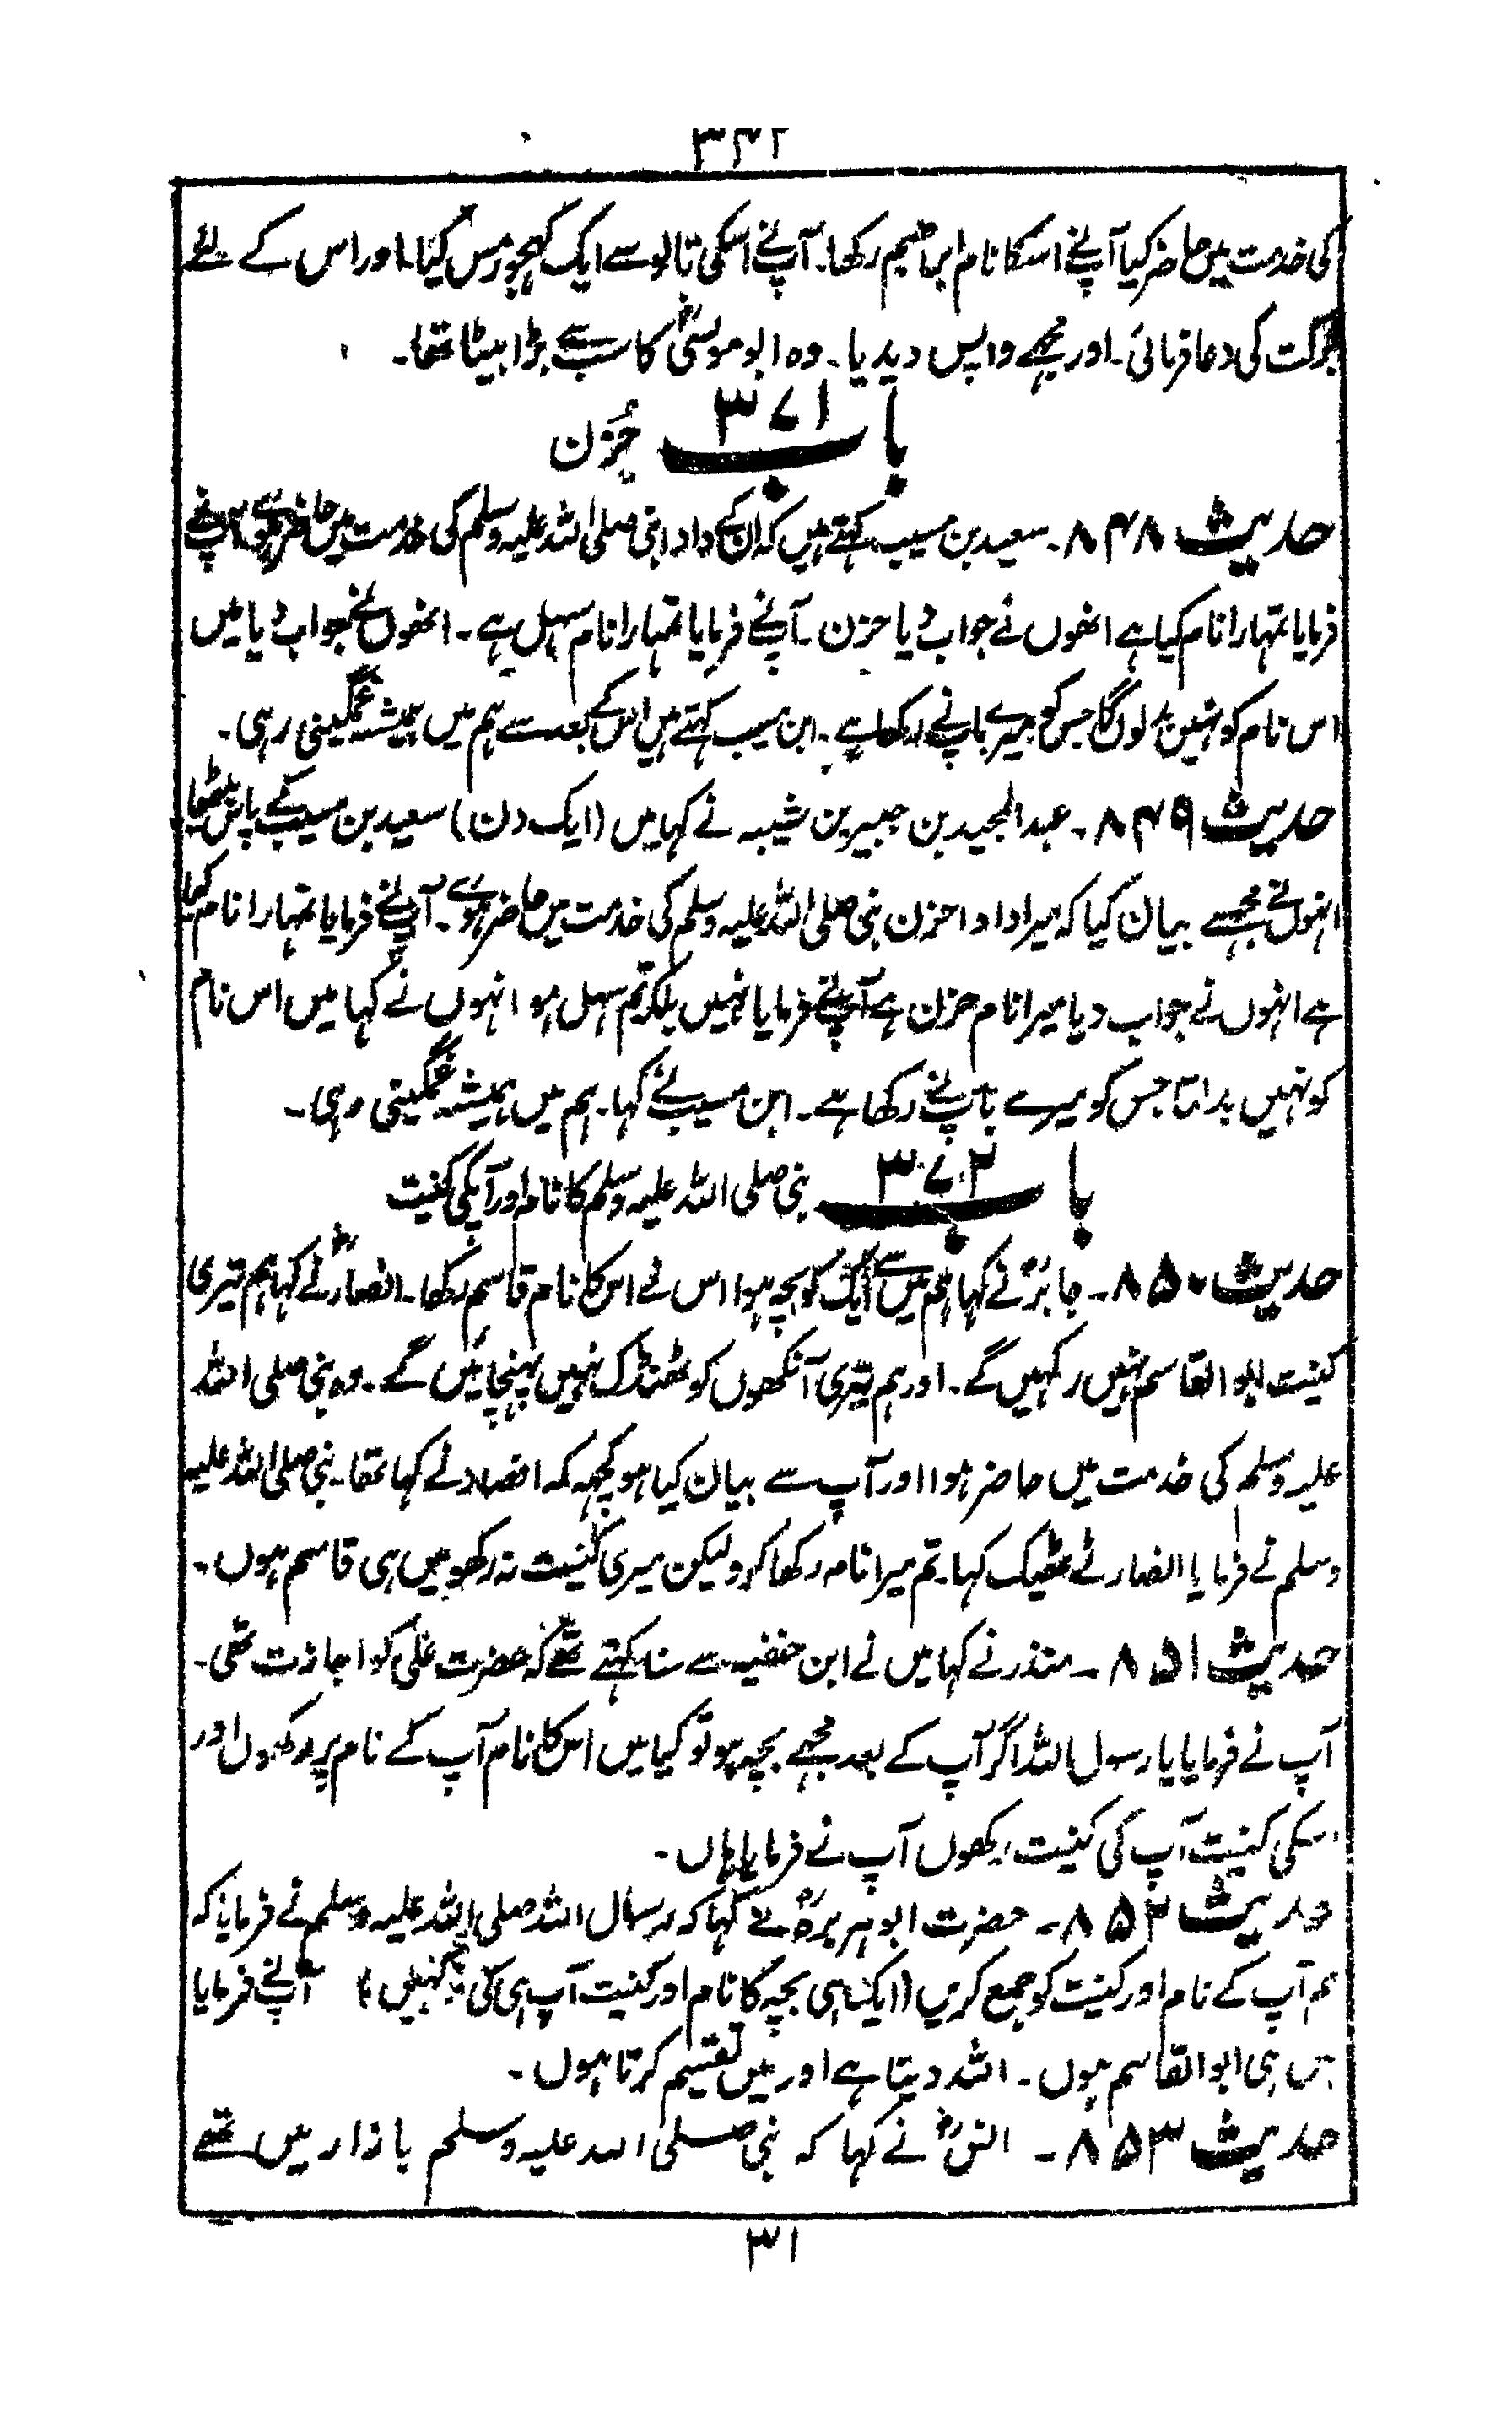 ۳۴۲
کی خدمت میں حاضر کیا آپنے اسکا نام ابراھیم رکھا۔ آپنے اسکی تالو سے ایک کھجور مس کیا۔ اور اس کے لئے
برکت کی دعا فرمائی۔ اور مجھے واپس دیدیا۔ وہ ابو موسیٰؓ کا سب سے بڑا بیٹا تھا۔
باب ۳۷۱ حُزن
حدیث ۸۴۸۔ سعید بن مسیب کہتے ہیں کہ ان کے دادا نبی صلی اللہ علیہ وسلم کی خدمت میں حاضر ہوے آپنے
فرمایا تمہارا نام کیا ہے انھوں نے جواب دیا حزن۔ آپنے فرمایا تمہارا نام سہل ہے۔ انھوں نے جواب دیا میں
اس نام کو نہیں بدلوں گا جس کو میرے باپنے رکھا ہے۔ ابن مسیب کہتے ہیں اس کے بعد سے ہم میں ہمیشہ غمگینی رہی۔
حدیث ۸۴۹۔ عبد المجید بن جبیر بن شیبہ نے کہا میں (ایک دن) سعید بن مسیب کے پاس بیٹھا
انہوں نے مجھسے بیان کیا کہ میرا دادا حزن نبی صلی اللہ علیہ وسلم کی خدمت میں حاضر ہوے۔ آپنے فرمایا تمہارا نام کیا
ہے انہوں نے جواب دیا میرا نام حزن ہے آپنے فرمایا نہیں بلکہ تم سہل ہو انہوں نے کہا میں اس نام
کو نہیں بدلتا جس کو میرے باپنے رکھا ہے۔ ابن مسیب نے کہا۔ ہم میں ہمیشہ غمگینی رہی۔
باب ۳۷۲ نبی صلی اللہ علیہ وسلم کا نام اور آپکی کنیت
حدیث ۸۵۰۔ جابرؓ نے کہا ہم میں سے ایک کو بچہ ہوا اس نے اس کا نام قاسم رکھا۔ انصارؓ نے کہا ہم تیری
کنیت ابو القاسم نہیں رکھیں گے۔ اور ہم تیری آنکھوں کو ٹھنڈک نہیں پہنچائیں گے۔ وہ نبی صلی اللہ
علیہ وسلم کی خدمت میں حاضر ہوا اور آپ سے بیان کیا جو کچھ کہ انصار نے کہا تھا۔ نبی صلی اللہ علیہ
وسلم نے فرمایا انصار نے ٹھیک کہا۔ تم میرا نام رکھا کرو لیکن میری کنیت نہ رکھو میں ہی قاسم ہوں۔
حدیث ۸۵۱۔ منذر نے کہا میں نے ابن حنفیہ سے سنا کہتے تھے کہ حضرت علیؓ کو اجازت تھی۔
آپ نے فرمایا یا رسول اللہ اگر آپ کے بعد مجھے بچہ ہو تو کیا میں اس کا نام آپ کے نام پر رکھوں اور
اسکی کنیت آپ کی کنیت رکھوں آپ نے فرمایا ہاں۔
حدیث ۸۵۲۔ حضرت ابو ہریرہؓ نے کہا کہ رسول اللہ صلی اللہ علیہ وسلم نے فرمایا کہ
ہم آپ کے نام اور کنیت کو جمع کریں (ایک ہی بچہ کا نام اور کنیت آپ ہی کی رکھیں) آپنے فرمایا
میں ہی ابو القاسم ہوں۔ اللہ دیتا ہے اور میں تقسیم کرتا ہوں۔
حدیث ۸۵۳۔ انسؓ نے کہا کہ نبی صلی اللہ علیہ وسلم بازار میں تھے
۳۱